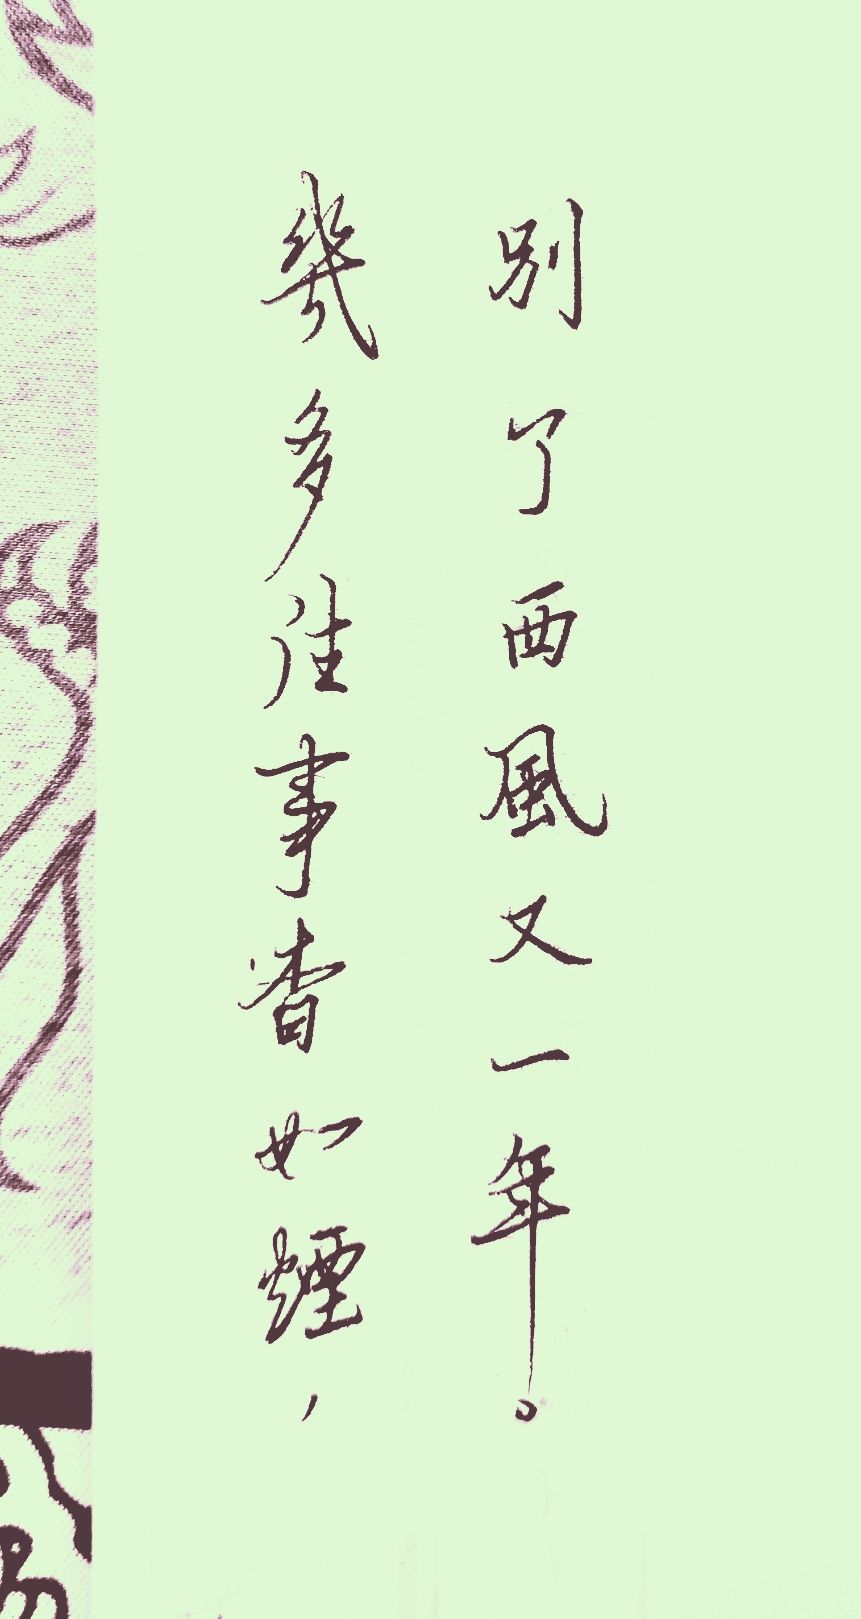 幾多往事杳如煙，
別了西風又一年。